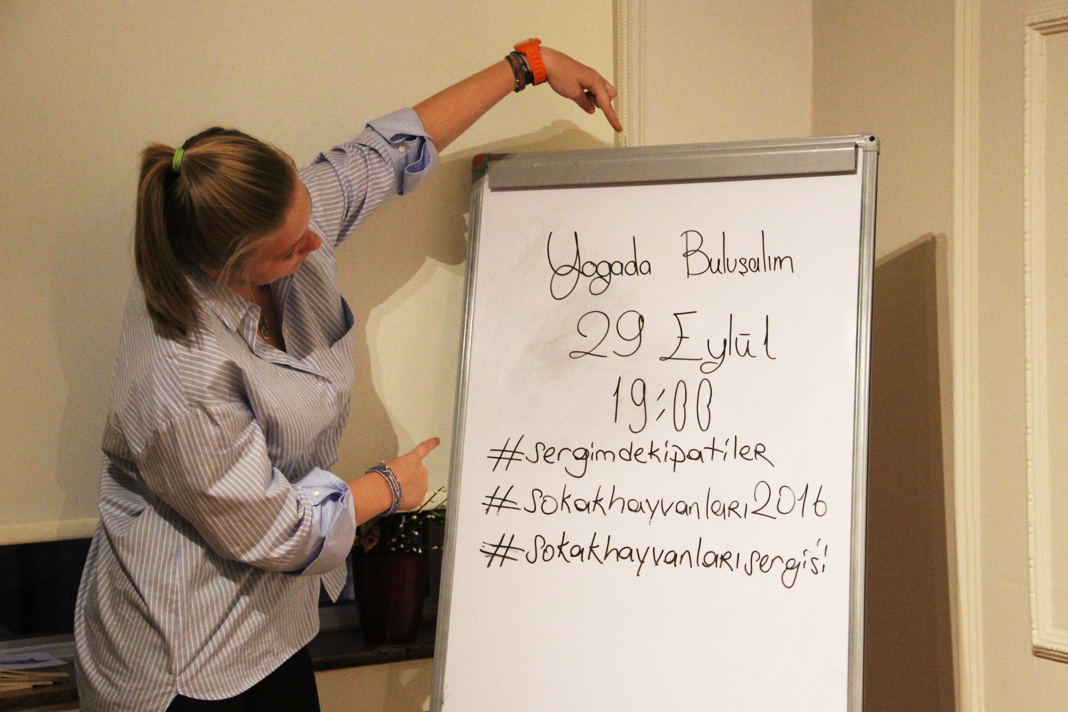 Yogada Buluşalım
29 Eylül
19:00
#sergimdekipatiler
#sokakhayvanları2016
#sokakhayvanlarısergisi